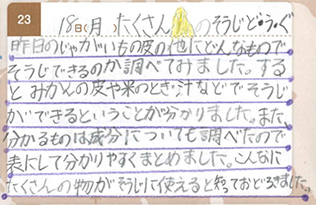 23
18日(月)たくさんのそうじどうぐ
昨日のじゃがいもの皮の他にどんなもので
そうじできるのか調べてみました。する
とみかんの皮や米のとぎ汁などでそうじ
ができるということが分かりました。また、
分かるものは成分についても調べたので
表にして分かりやすくまとめました。こんなに
たくさんの物がそうじに使えると知っておどろきました。